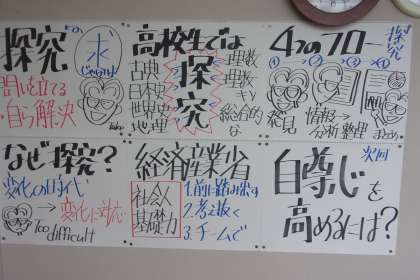 探究
問いを立てる
・自ら解決
高校生では
古典
日本史
世界史
地理
探究
理数
理数
総合的な
4つのフロー
探究
① → ② → ③ → ④
発見
情報
分析
整理
まとめ
なぜ探究?
変化の時代
→ 変化に対応
Too
difficult
経済産業省
社会人
基礎力
1.前に踏み出す
2.考え抜く
3.チームで
次回
自尊心を
高めるには?